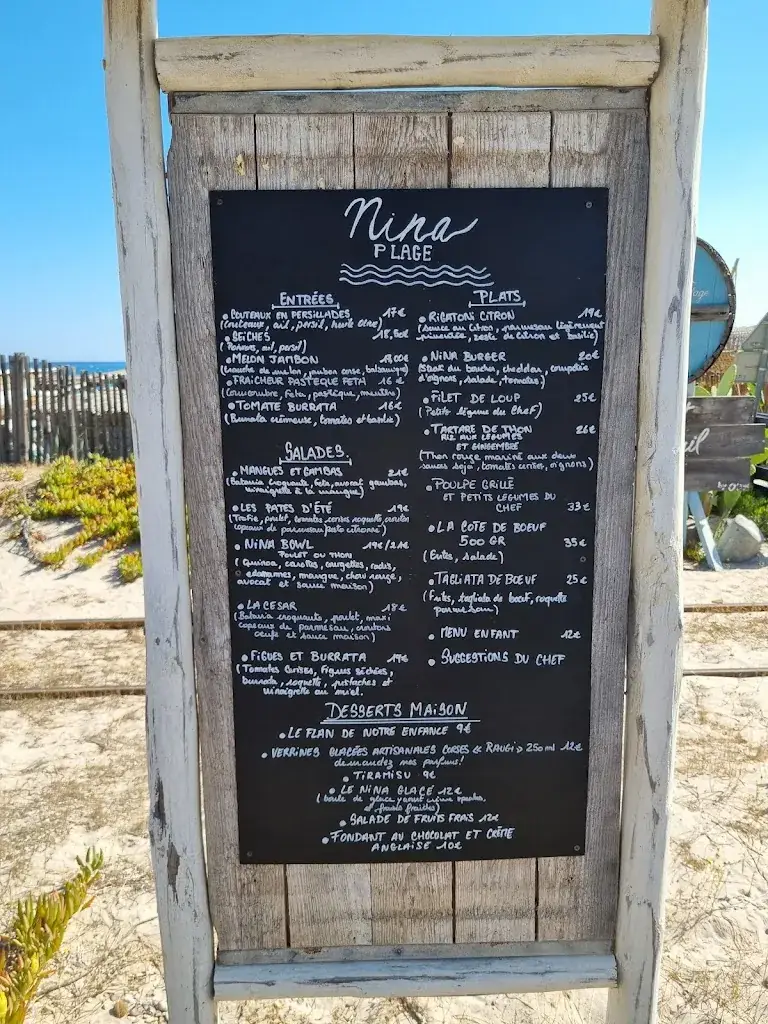 Nina
PLAGE
ENTRÉES
• COUTEAUX EN PERSILLADES 17€
(Couteaux, ail, persil, huile olive)
• SEICHES 18,50€
(Poivrons, ail, persil)
• MELON JAMBON
(tranche de melon, jambon corse, balsamique)
• FRAICHEUR PASTEQUE FETA 16€
(Concombre, feta, pastèque, menthe)
• TOMATE BURRATA 16€
(Burrata crémeuse, tomates et basilic)
SALADES
• MANGUES ET GAMBAS 21€
(Batavia croquante, feta, avocat gambas,
vinaigrette à la mangue)
• LES PATES D'ÉTÉ 19€
(Trofie, poulet, tomates cerises roquette, croutons
copeaux de parmesan pesto citronné)
• NINA BOWL 19€/21€
POULET OU THON
(Quinoa, carottes, courgettes, radis,
edamames, mangue, chou rouge,
avocat et sauce maison)
• LA CESAR 18€
(Batavia croquante, poulet, maxi
copeaux de parmesan, croutons
oeufs et sauce maison)
• FIGUES ET BURRATA 19€
(Tomates Cerises, Figues Séchées,
burrata, roquette, pistaches et
Vinaigrette au miel.
PLATS
• RIGATONI CITRON 19€
(Sauce au citron, parmesan légèrement
pimentée, zeste de citron et basilic)
• NINA BURGER 20€
(Steak du boucher, cheddar, compotée
d'oignons, salade, tomates)
• FILET DE LOUP 25€
(Petits légume du Chef)
• TARTARE DE THON 26€
RIZ AUX LÉGUMES
ET GINGEMBRE
(Thon rouge mariné aux deux
sauces soja, tomates cerises, oignons)
• POULPE GRILLÉ
ET PETITS LEGUMES DU
CHEF 33€
• LA COTE DE BOEUF
500 GR 35€
(Frites, salade)
• TAGLIATA DE BOEUF 25€
(Frites, tagliata de boeuf, roquette
parmesan)
• MENU ENFANT 12€
• SUGGESTIONS DU CHEF
DESSERTS MAISON
• LE FLAN DE NOTRE ENFANCE 9€
• VERRINES GLACÉES ARTISANALES CORSES « RAUGI » 250ml 12€
demandez nos parfums!
• TIRAMISU 9€
• LE NINA GLACÉ 12€
(boule de glace yaourt crème
et fruits fraiches)
• SALADE DE FRUITS FRAIS 12€
• FONDANT AU CHOCOLAT ET CRÈME
ANGLAISE 10€